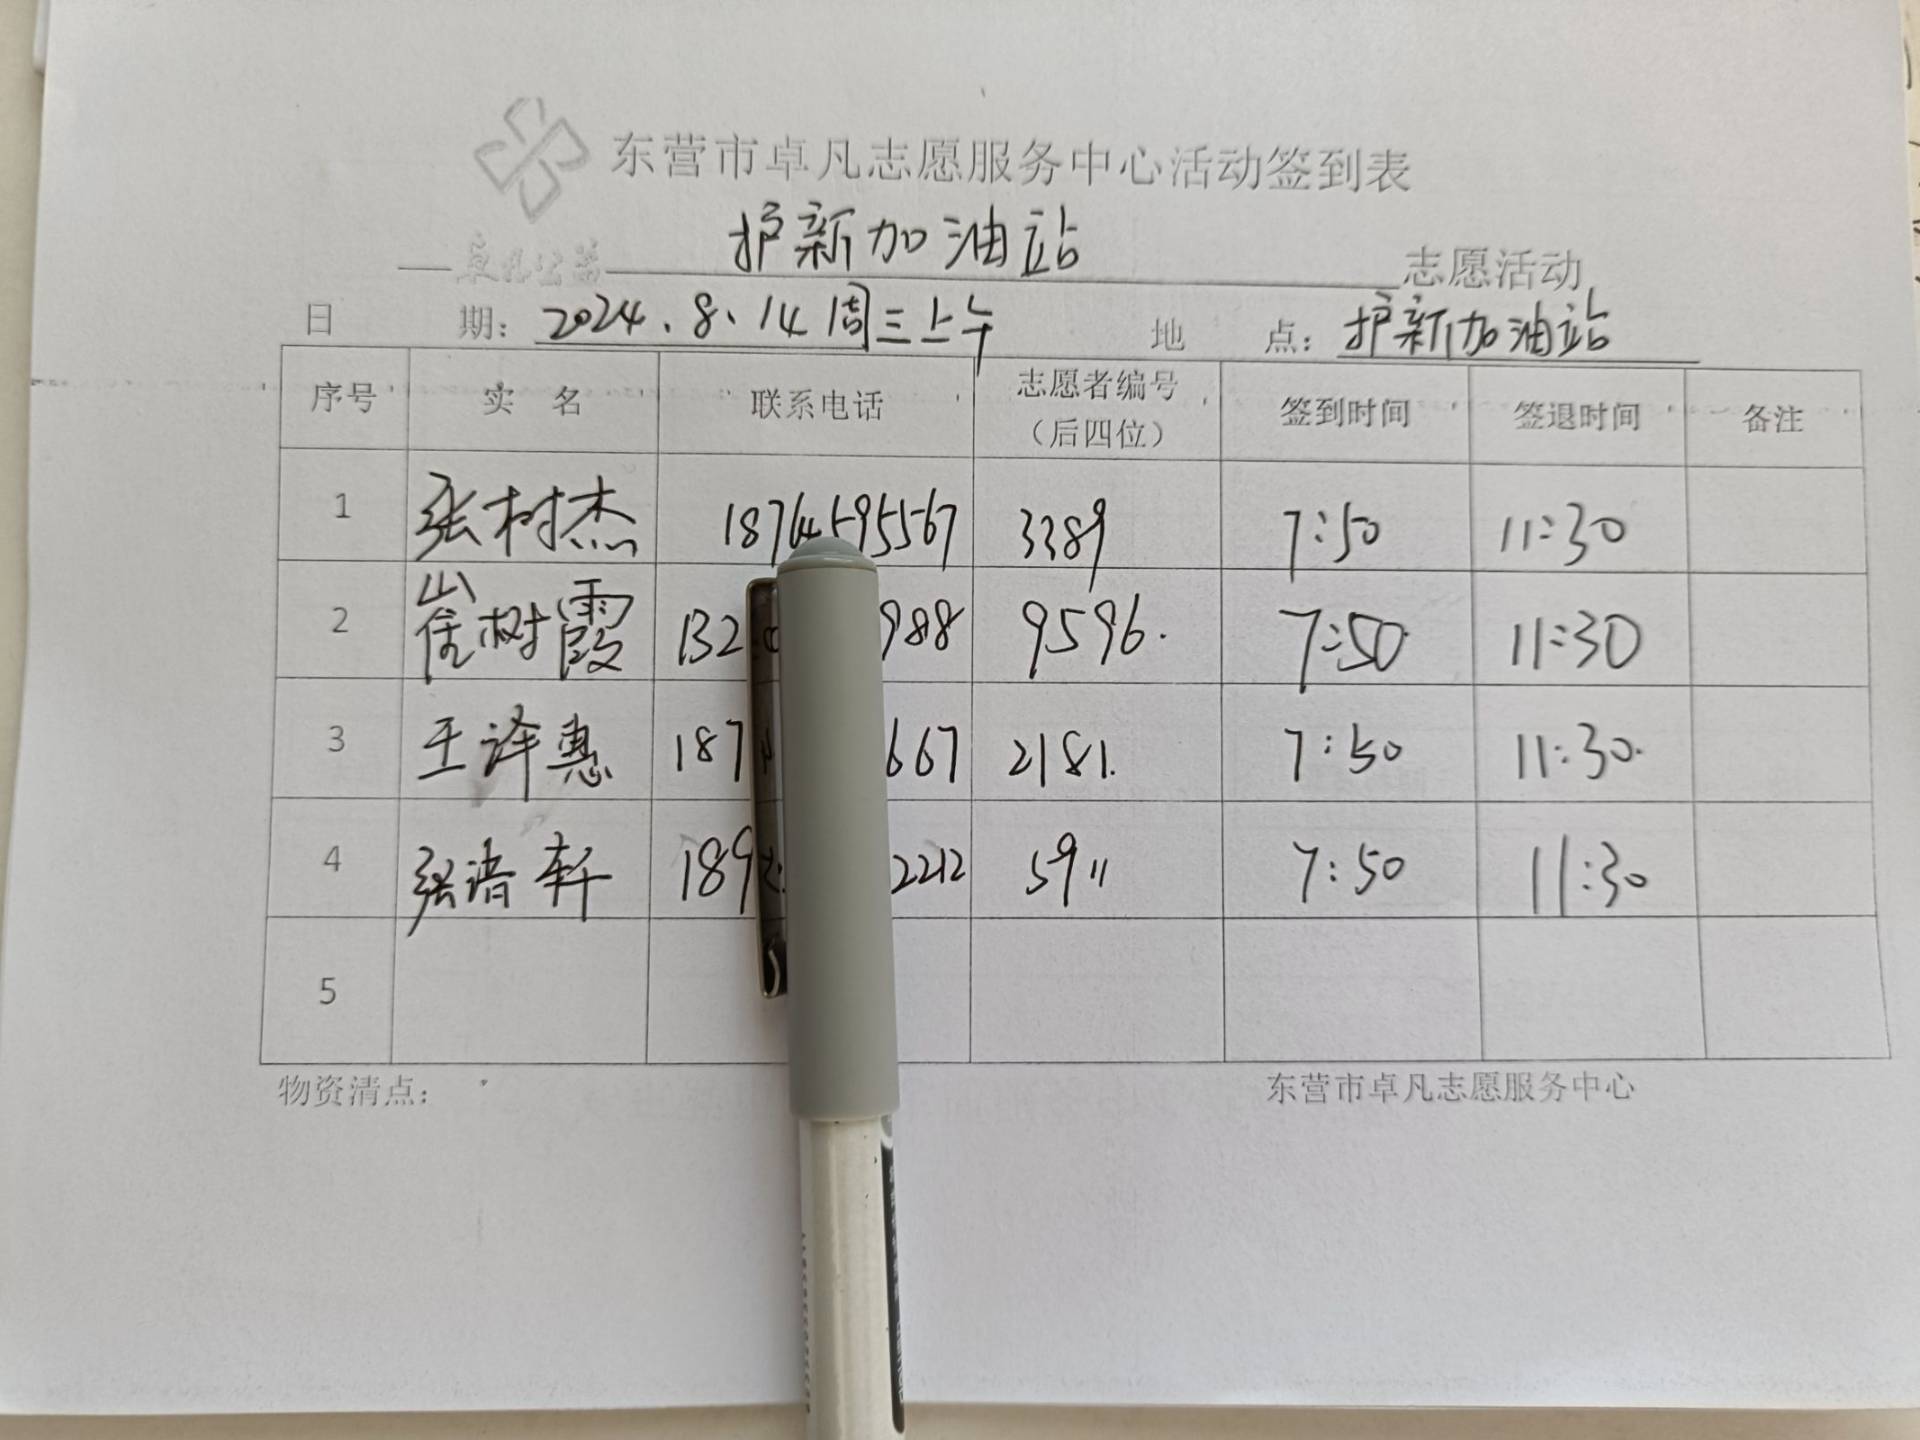 东营市卓凡志愿服务中心活动签到表
卓凡公益 护新加油站 志愿活动
日 期: 2024.8.14 周三上午 地 点: 护新加油站
序号 实 名 联系电话 志愿者编号（后四位） 签到时间 签退时间 备注
1 张树杰 18764595567 3389 7:50 11:30
2 崔树霞 132 988 9596. 7:50 11:30
3 王译惠 187 667 2181. 7:50 11:30.
4 张 轩 189 2212 5911 7:50 11:30
5
物资清点: 东营市卓凡志愿服务中心